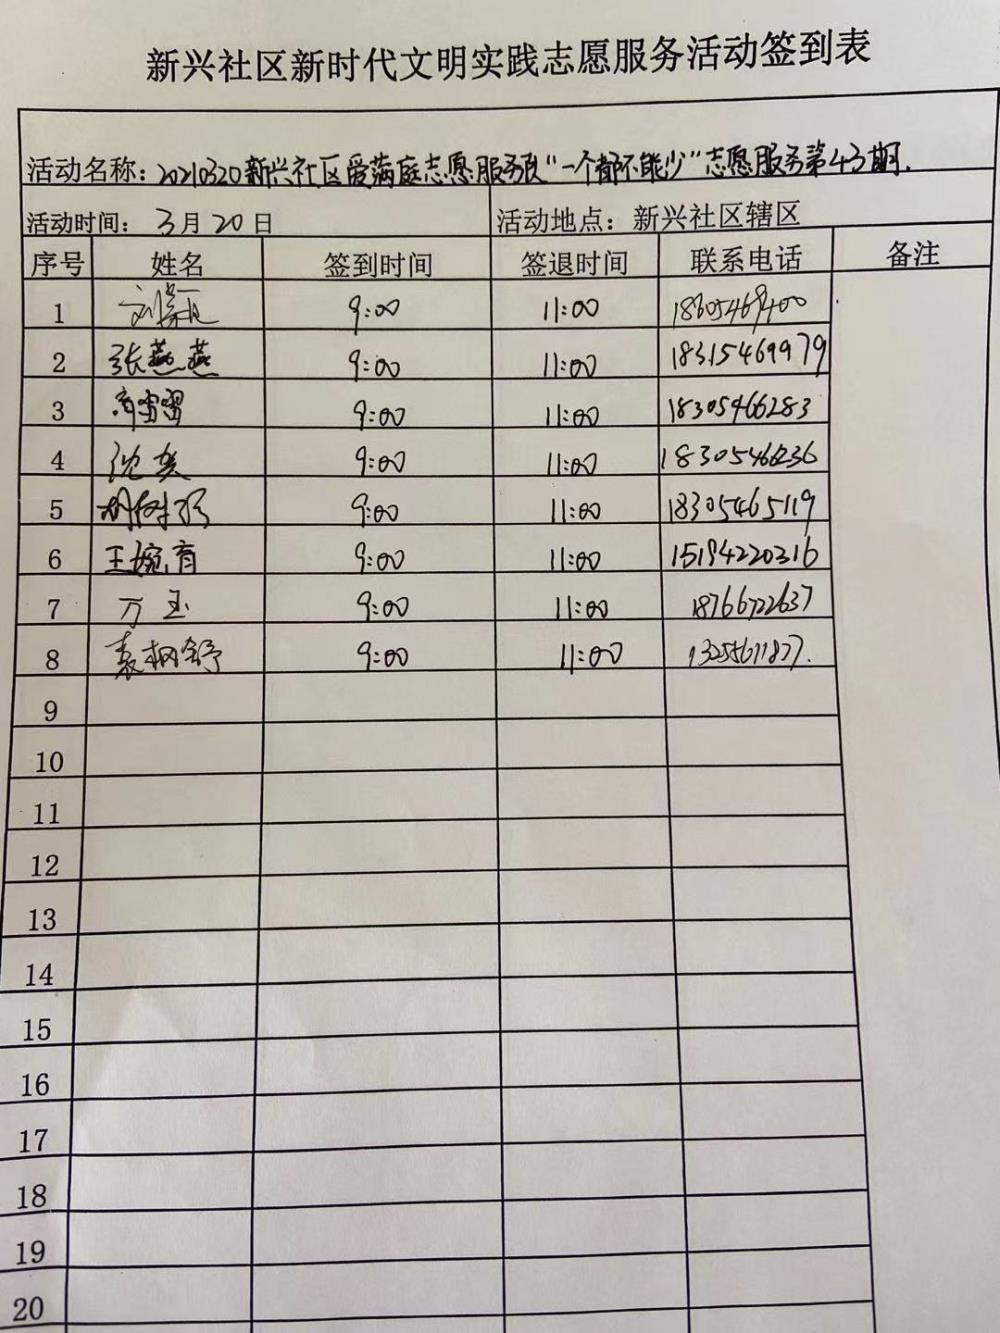 新兴社区新时代文明实践志愿服务活动签到表
活动名称：20210320新兴社区爱满庭志愿服务队"一个都不能少"志愿服务第43期.
活动时间： 3月20日 活动地点：新兴社区辖区
序号 姓名 签到时间 签退时间 联系电话 备注
1 9:00 11:00 18605469400
2 张燕燕 9:00 11:00 18315469979
3 9:00 11:00 18305466283
4 9:00 11:00 18305466236
5 9:00 11:00 18305465119
6 王婉育 9:00 11:00 15194220316
7 万玉 9:00 11:00 18766722637
8 袁枫舒 9:00 11:00 13255611877.
9
10
11
12
13
14
15
16
17
18
19
20